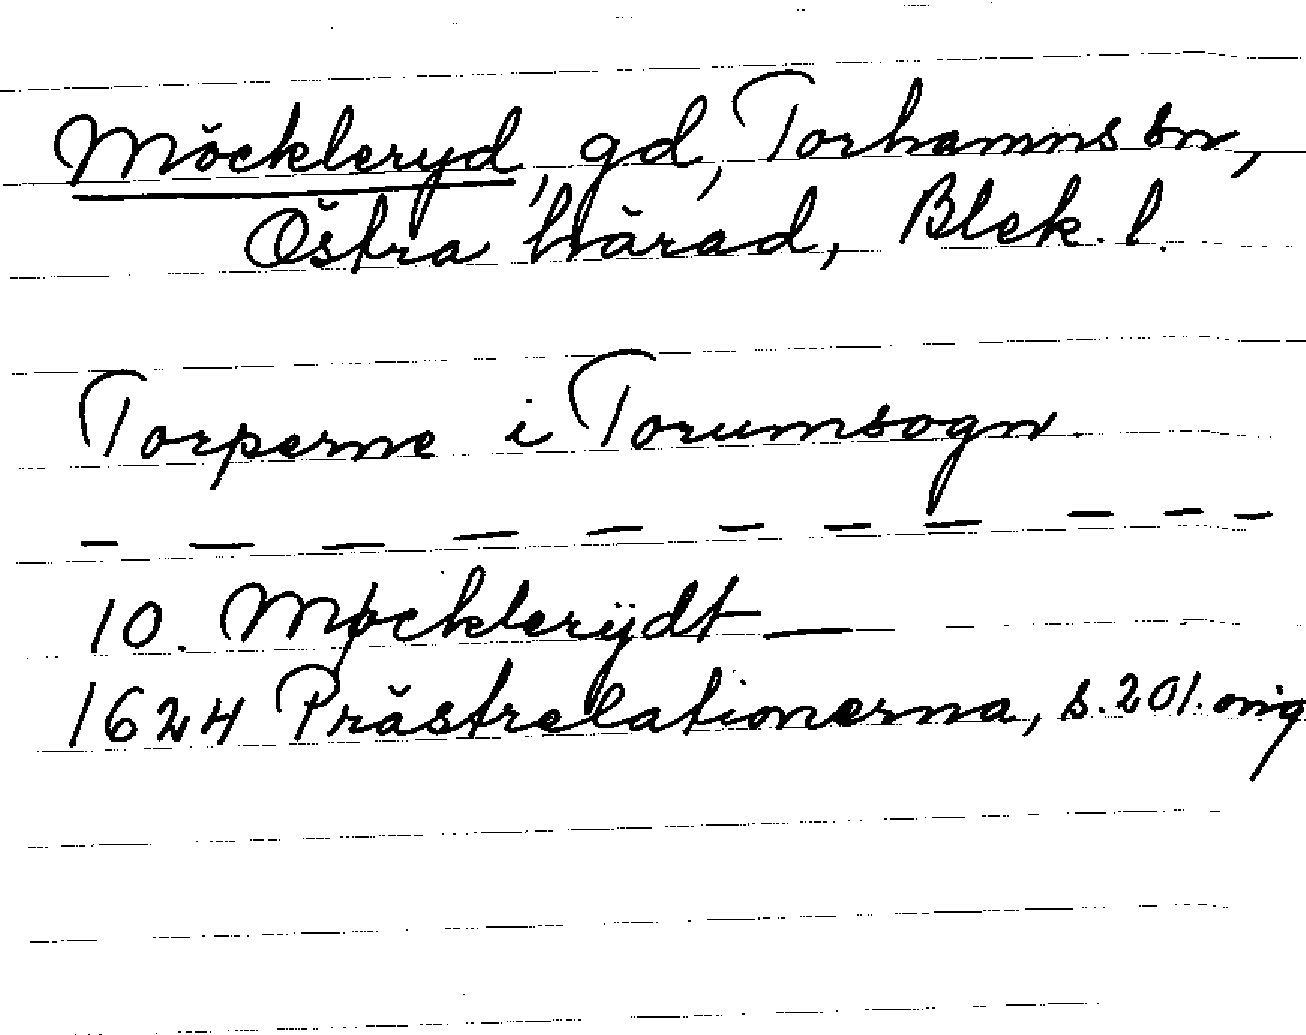 Möckleryd, gd, Torhamns sn,
Östra härad, Blek. l.
Torperne i Torumsogn.
— — — — — — — — — — —
10. Møcklerÿdt —
1624 Prästrelationerna, s. 201. orig